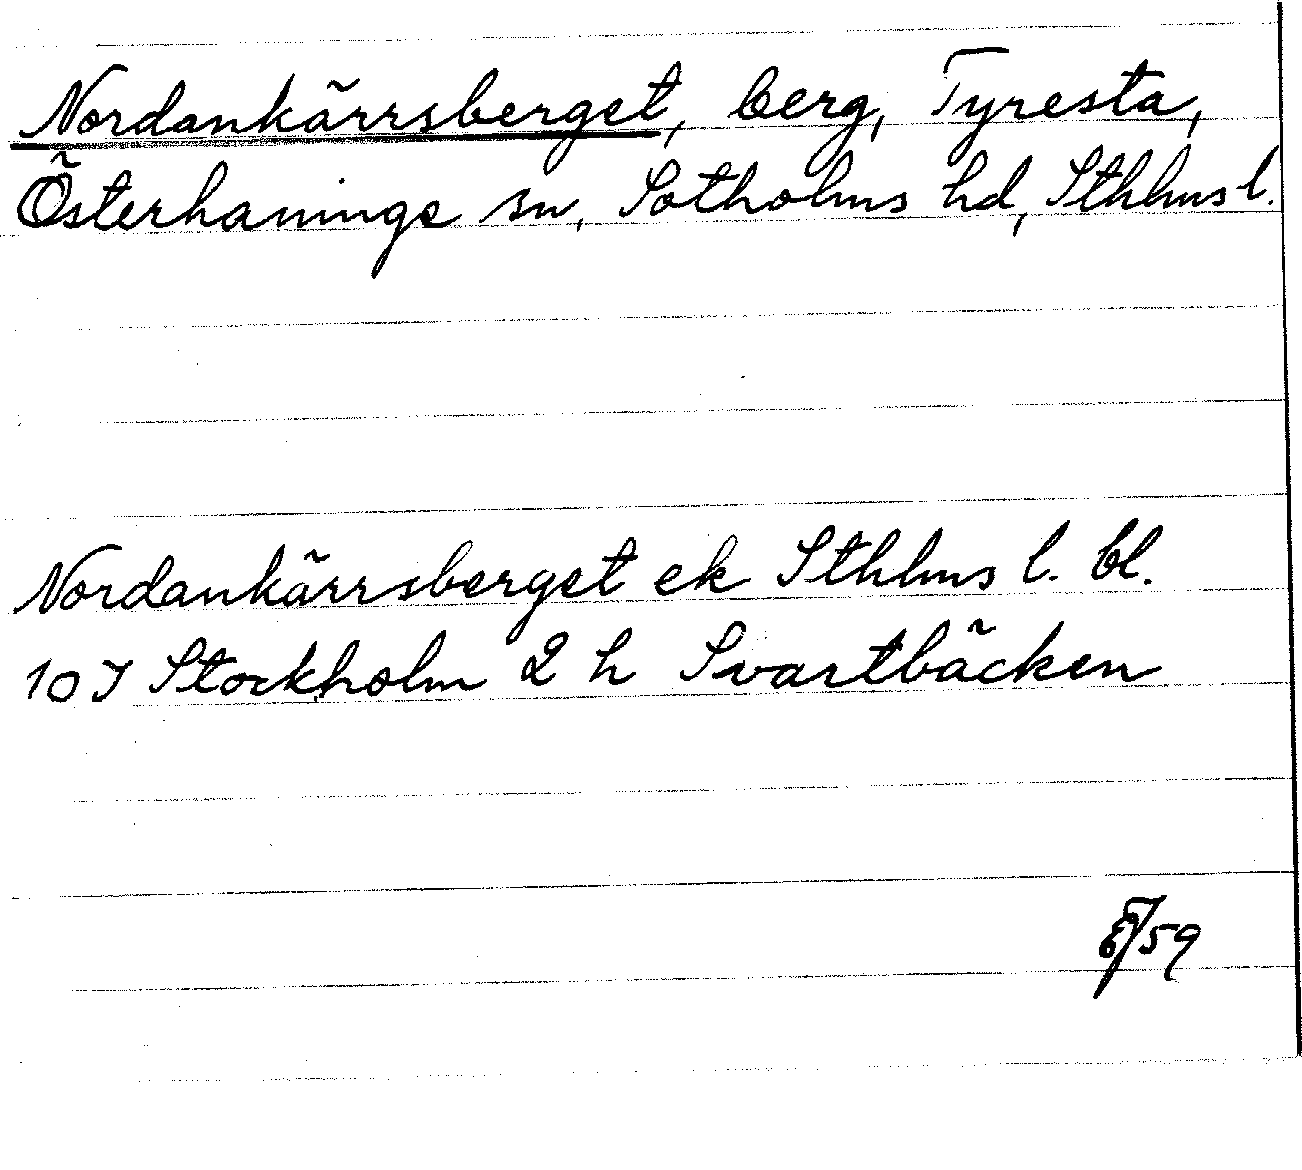 Nordankärrsberget, berg, Tyresta,
Österhaninge sn, Sotholms hd, Sthlms l.
Nordankärrsberget ek Sthlms l. bl.
10J Stockholm 2 h Svartbäcken
59